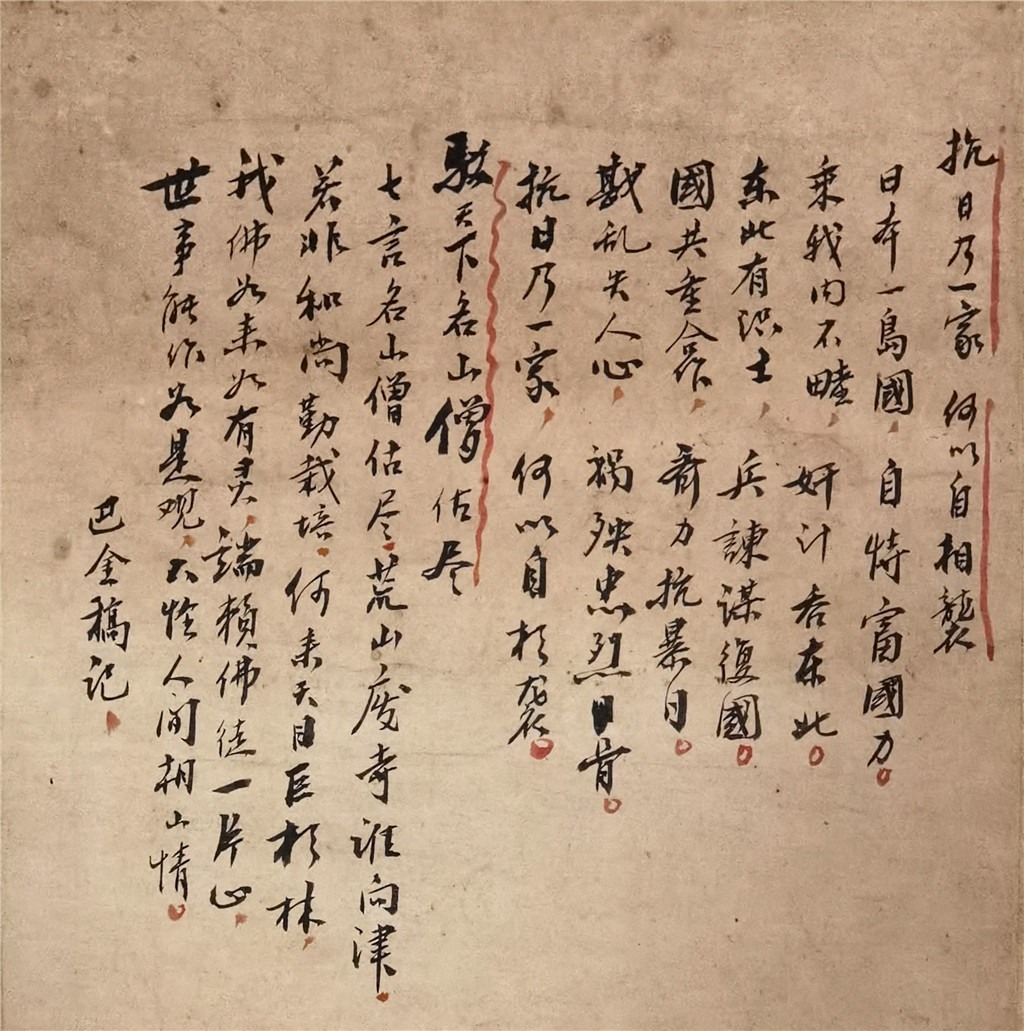 抗日乃一家 何以自相襲
日本一島國，自恃富國力。
乘我内不睦，奸计吞东北。
东北有识士，兵諫谋復國。
國共重合作，齊力抗暴日。
戡乱失人心，禍殃忠烈胄。
抗日乃一家，何以自相袭。
駁天下名山僧佔尽
七言名山僧佔尽，荒山废寺谁向津。
若非和尚勤栽培，何来天目巨杉林，
我佛如来如有灵，端賴佛徒一片心，
世事能作如是观，不怪人间相山情。
巴金稿记，